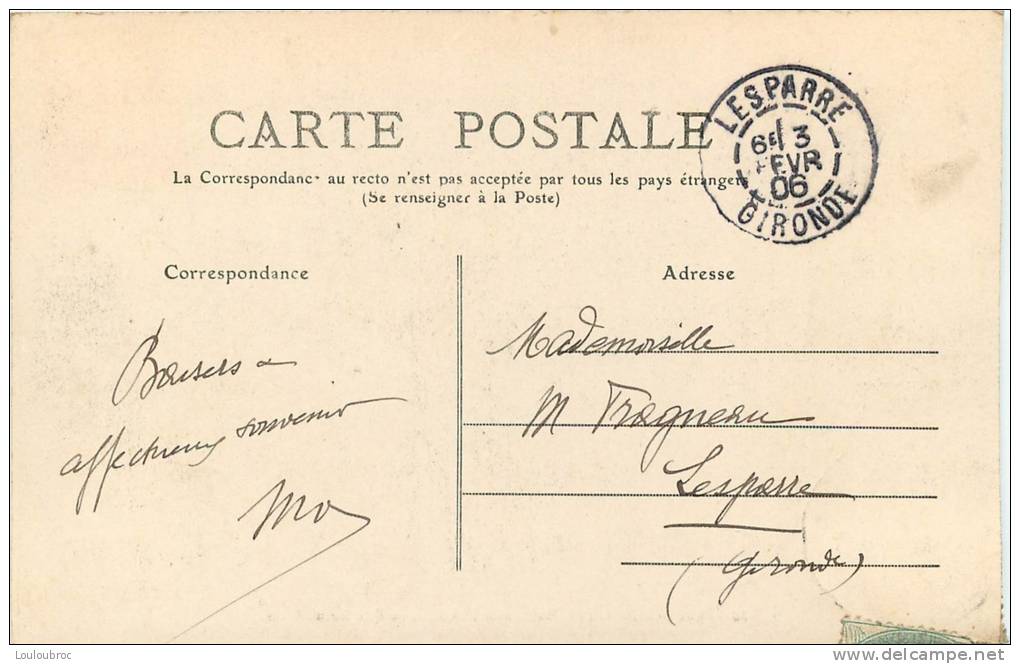 CARTE POSTALE
La Correspondance au recto n'est pas acceptée par tous les pays étrangers
(Se renseigner à la Poste)
LESPARRE
6E 3
FEVR
06
GIRONDE
Correspondance
Baisers &
affectueux souvenir
Adresse
Mademoiselle
M Fragneau
Lesparre
(Gironde)
Louloubroc
delcampe.net